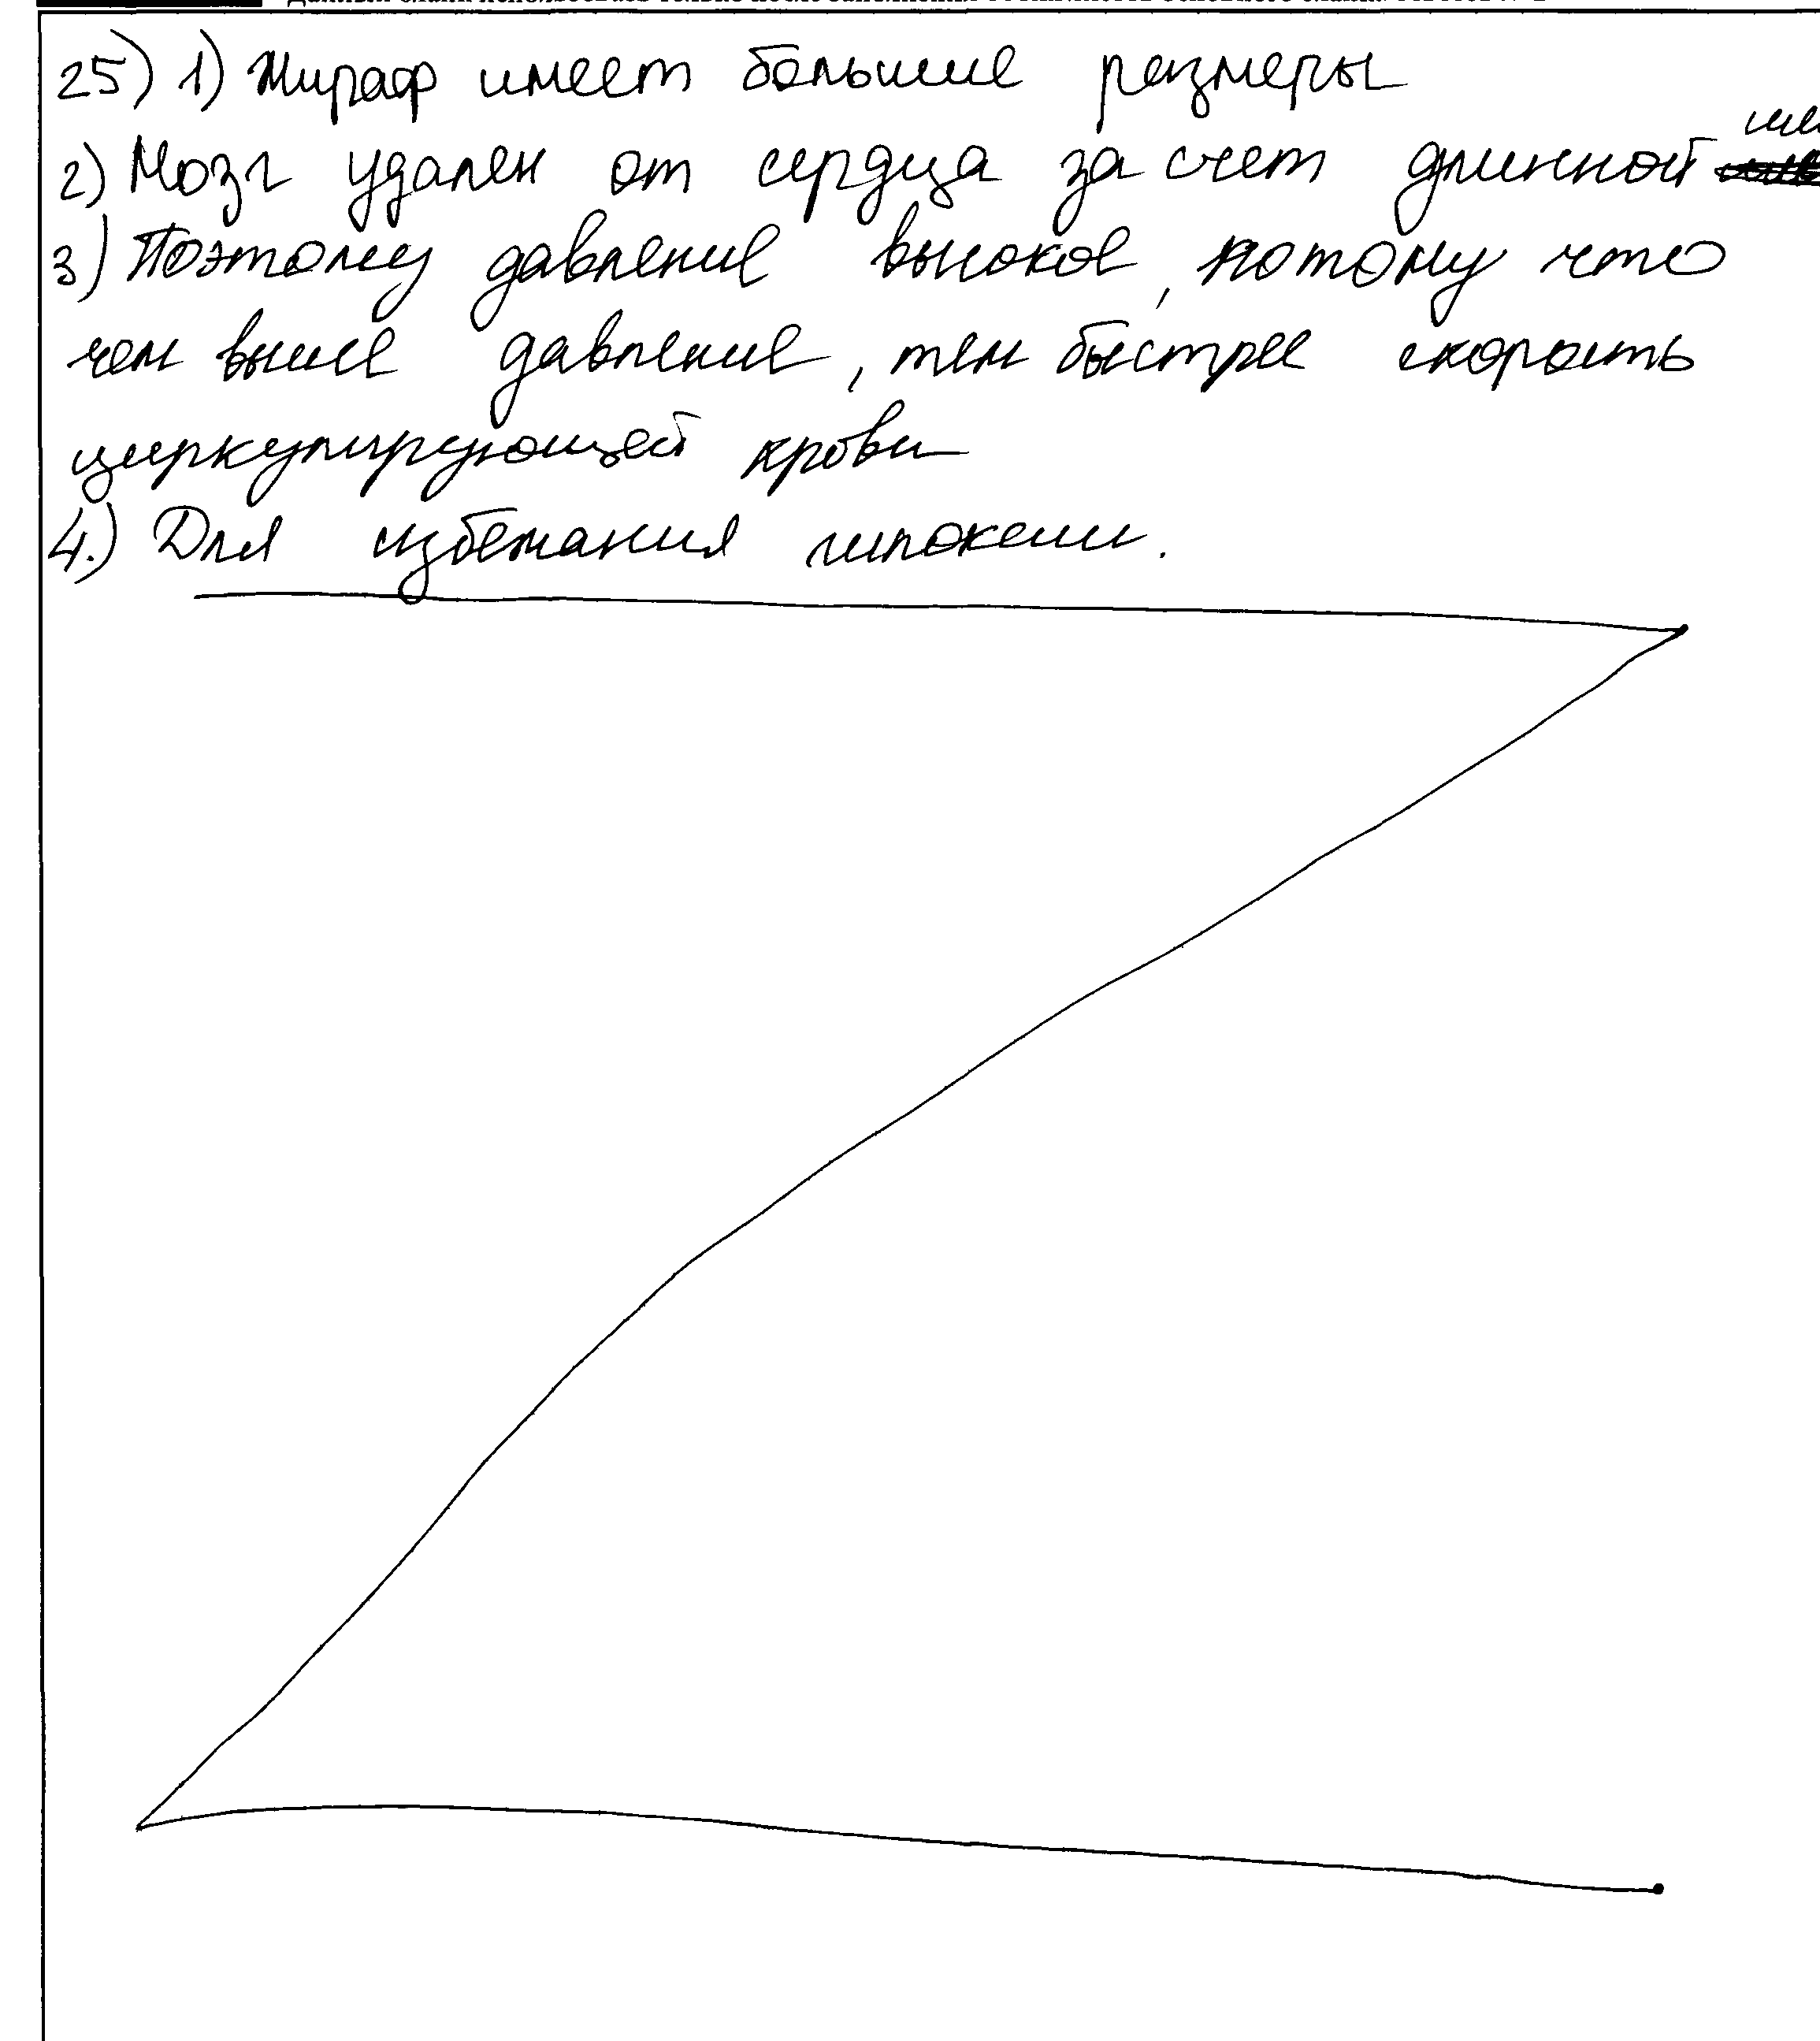 25) 1) Жираф имеет большие размеры
2) Мозг удален от сердца за счет длинной
3) Поэтому давление высокое, потому что
чем выше давление, тем быстрее скорость
циркулирующей крови
4.) Для избежания гипоксии.